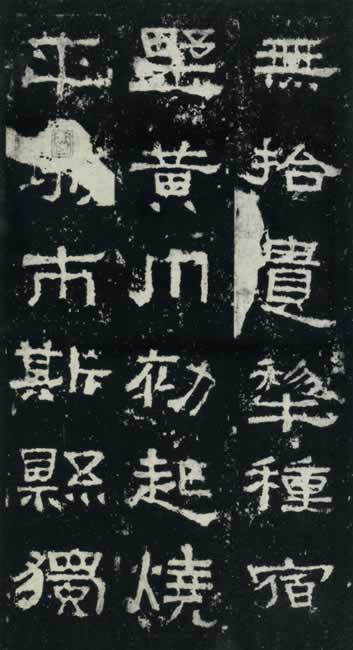 無拾遺犂種宿
壄黄巾初起燒
平市斯縣獨